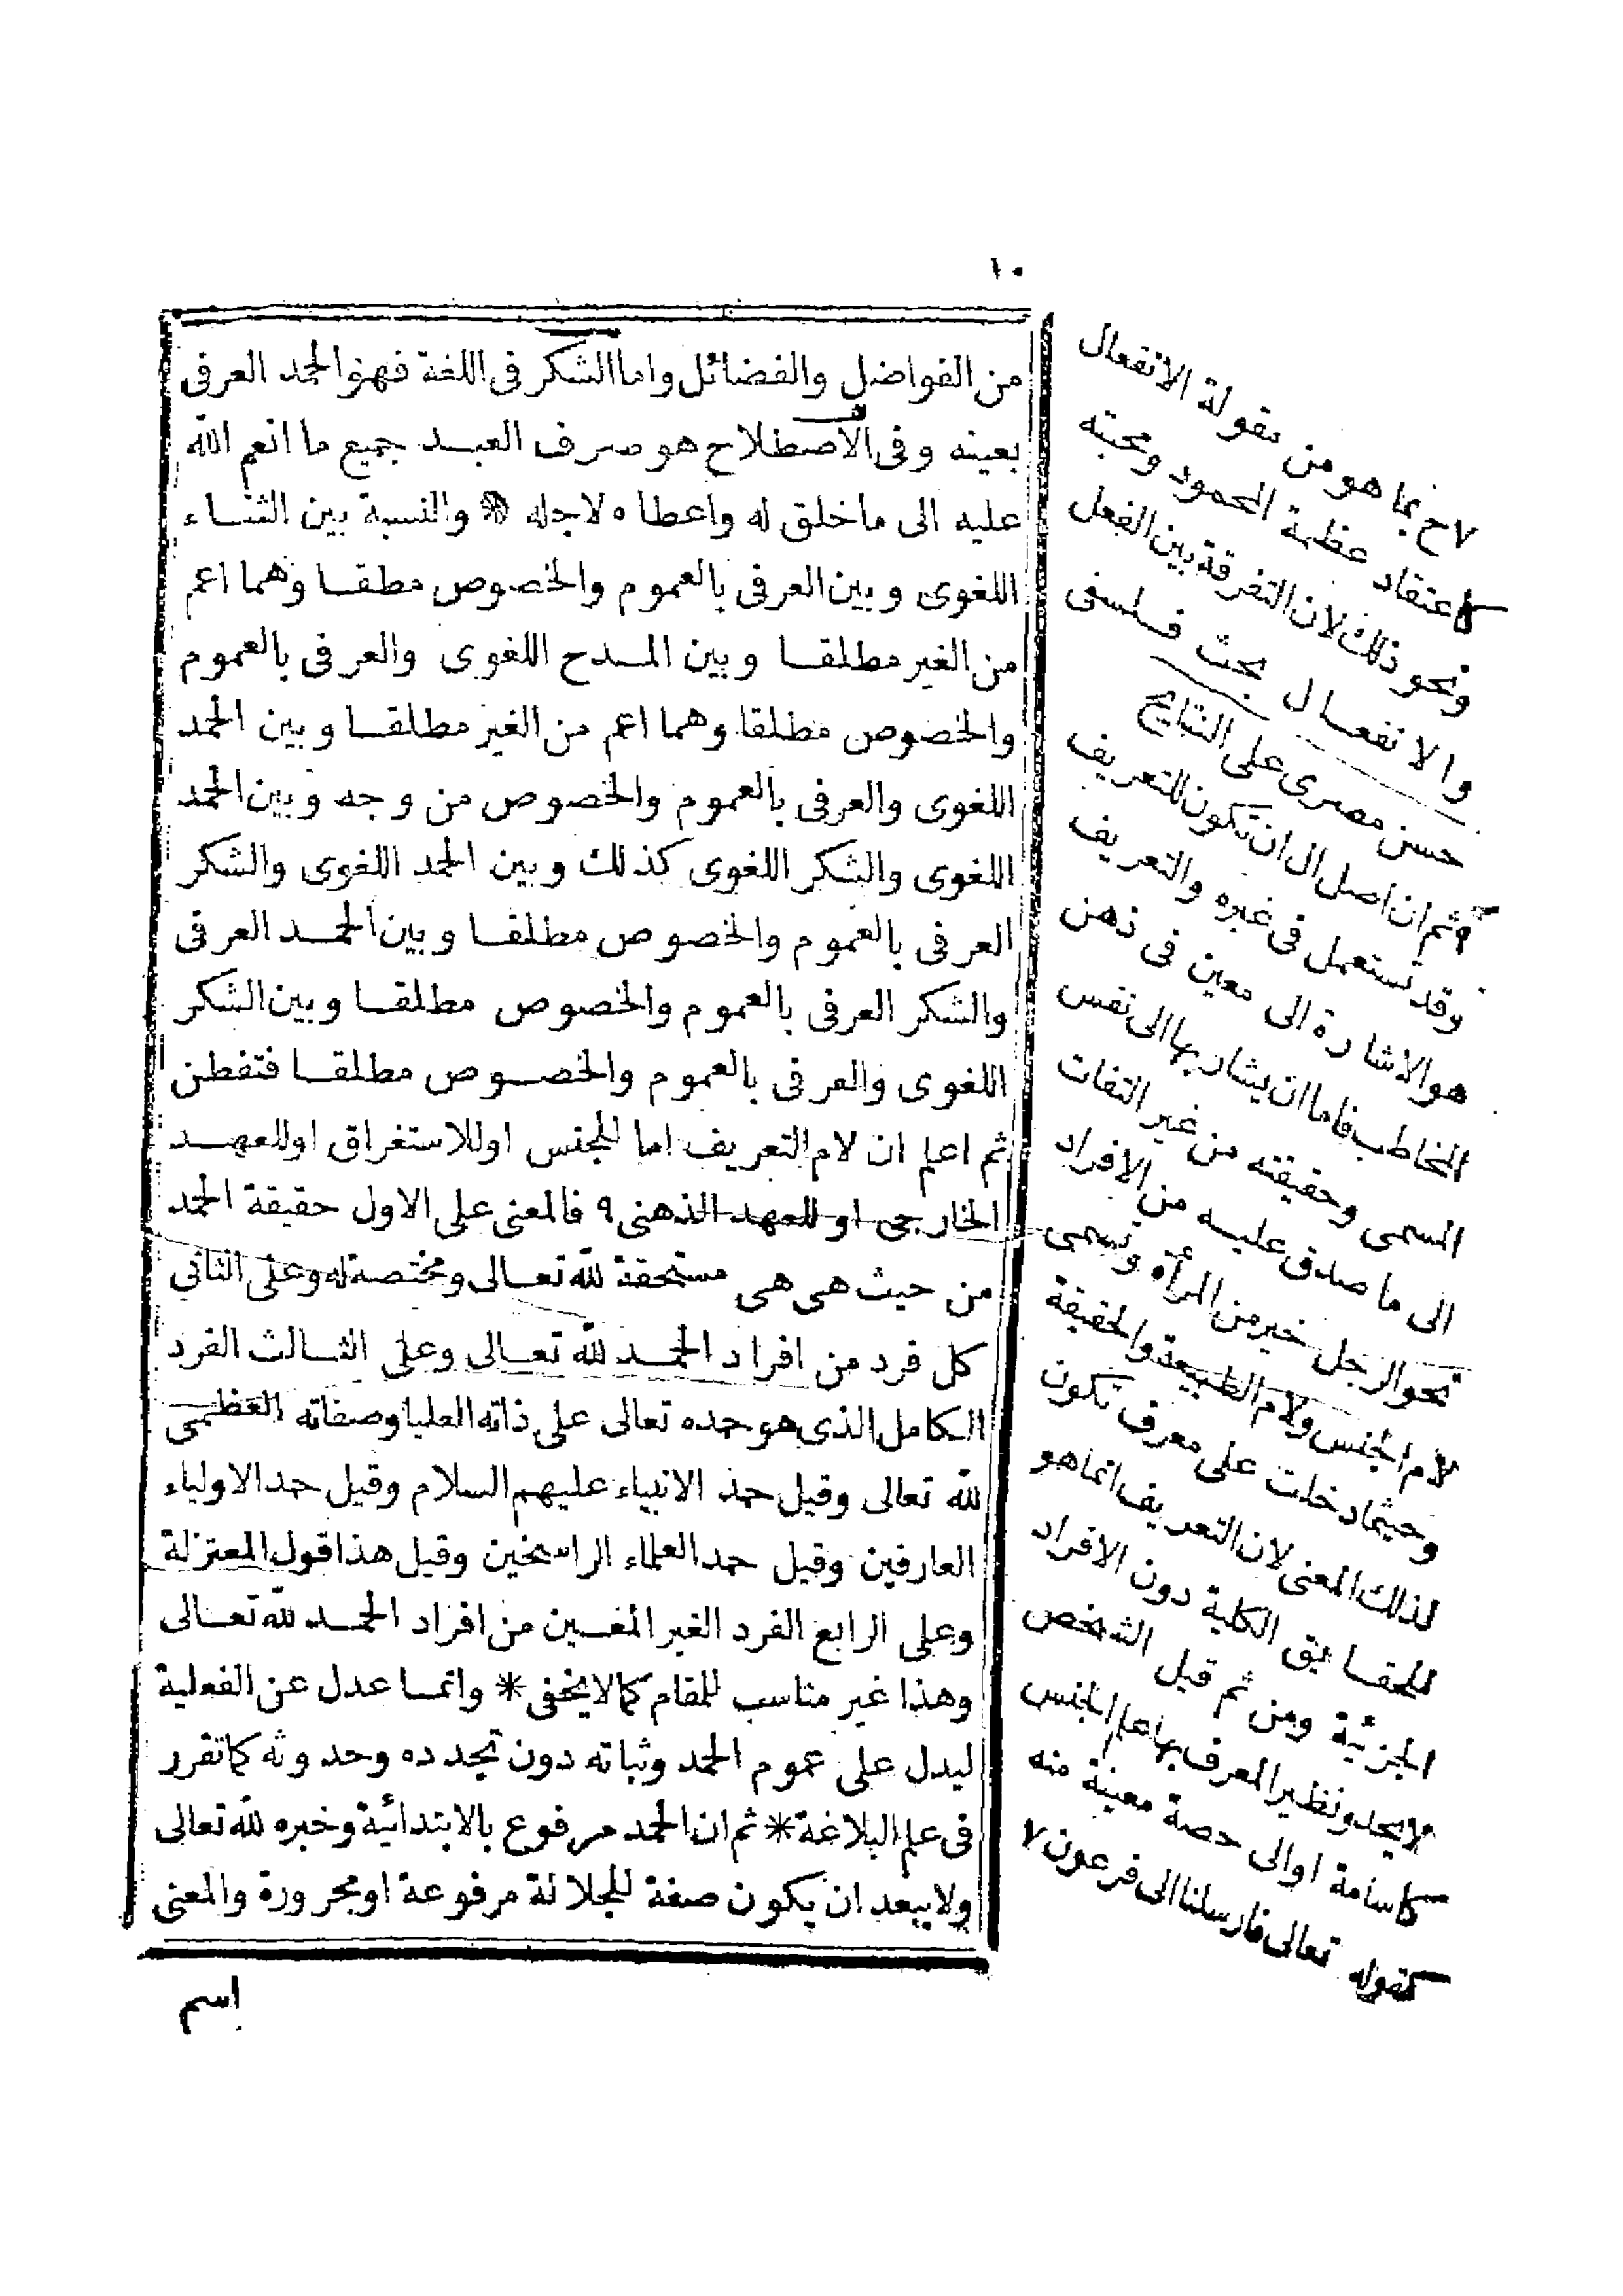 ١٠
من الفواضل والفضائل واما الشكر فى اللغة فهو الحمد العرفى
بعينه وفى الاصطلاح هو صرف العبد جميع ما انعم الله
عليه الى ماخلق له واعطاه لاجله * والنسبة بين الثناء
اللغوى وبين العرفى بالعموم والخصوص مطقا وهما اعم
من الغير مطلقا وبين المدح اللغوى والعرفى بالعموم
والخصوص مطلقا وهما اعم من الغير مطلقا وبين الحمد
اللغوى والعرفى بالعموم والخصوص من وجه وبين الحمد
اللغوى والشكر اللغوى كذلك وبين الحمد اللغوى والشكر
العرفى بالعموم والخصوص مطلقا وبين الحمد العرفى
والشكر العرفى بالعموم والخصوص مطلقا وبين الشكر
اللغوى والعرفى بالعموم والخصوص مطلقا فتفطن
ثم اعلم ان لام التعريف اما للجنس اوللاستغراق اوللعهد
الخارجى او للعهد الذهنى ٩ فالمعنى على الاول حقيقة الحمد
من حيث هى هى مستحقة لله تعالى ومختصة له وعلى الثانى
كل فرد من افراد الحمد لله تعالى وعلى الثالث الفرد
الكامل الذى هو حمده تعالى على ذاته العليا وصفاته العظمى
لله تعالى وقيل حمد الانبياء عليهم السلام وقيل حمد الاولياء
العارفين وقيل حمد العلماء الراسخين وقيل هذا قول المعتزلة
وعلى الرابع الفرد الغير المعين من افراد الحمد لله تعالى
وهذا غير مناسب للمقام كما لا يخفى * وانما عدل عن الفعلية
ليدل على عموم الحمد وثباته دون تجدده وحدوثه كما تقرر
فى علم البلاغة * ثم ان الحمد مرفوع بالابتدائية وخبره لله تعالى
ولا يبعد ان يكون صفة للجلالة مرفوعة او مجرورة والمعنى
اسم
٧ ح بما هو من مقولة الانفعال
كاعتقاد عظمة المحمود ومحبته
ونحو ذلك لان التفرقة بين الفعل
والانفعال بحث فلسفى
حسن مصرى على النتايج
٩ ثم ان اصل ال ان تكون للتعريف
وقد تستعمل فى غيره والتعريف
هو الاشارة الى معين فى ذهن
المخاطب فاما ان يشار بها الى نفس
المسمى وحقيقته من غير التفات
الى ما صدق عليه من الافراد
نحو الرجل خير من المرأة وتسمى
لام الجنس ولام الطبيعة والحقيقة
وحيثما دخلت على معرف تكون
لذلك المعنى لان التعريف انما هو
للحقايق الكلية دون الافراد
الجزئية ومن ثم قيل الشخص
لايحد ونظير المعرف بها علم الجنس
كاسامة او الى حصة معينة منه
كقوله تعالى فارسلنا الى فرعون ٧